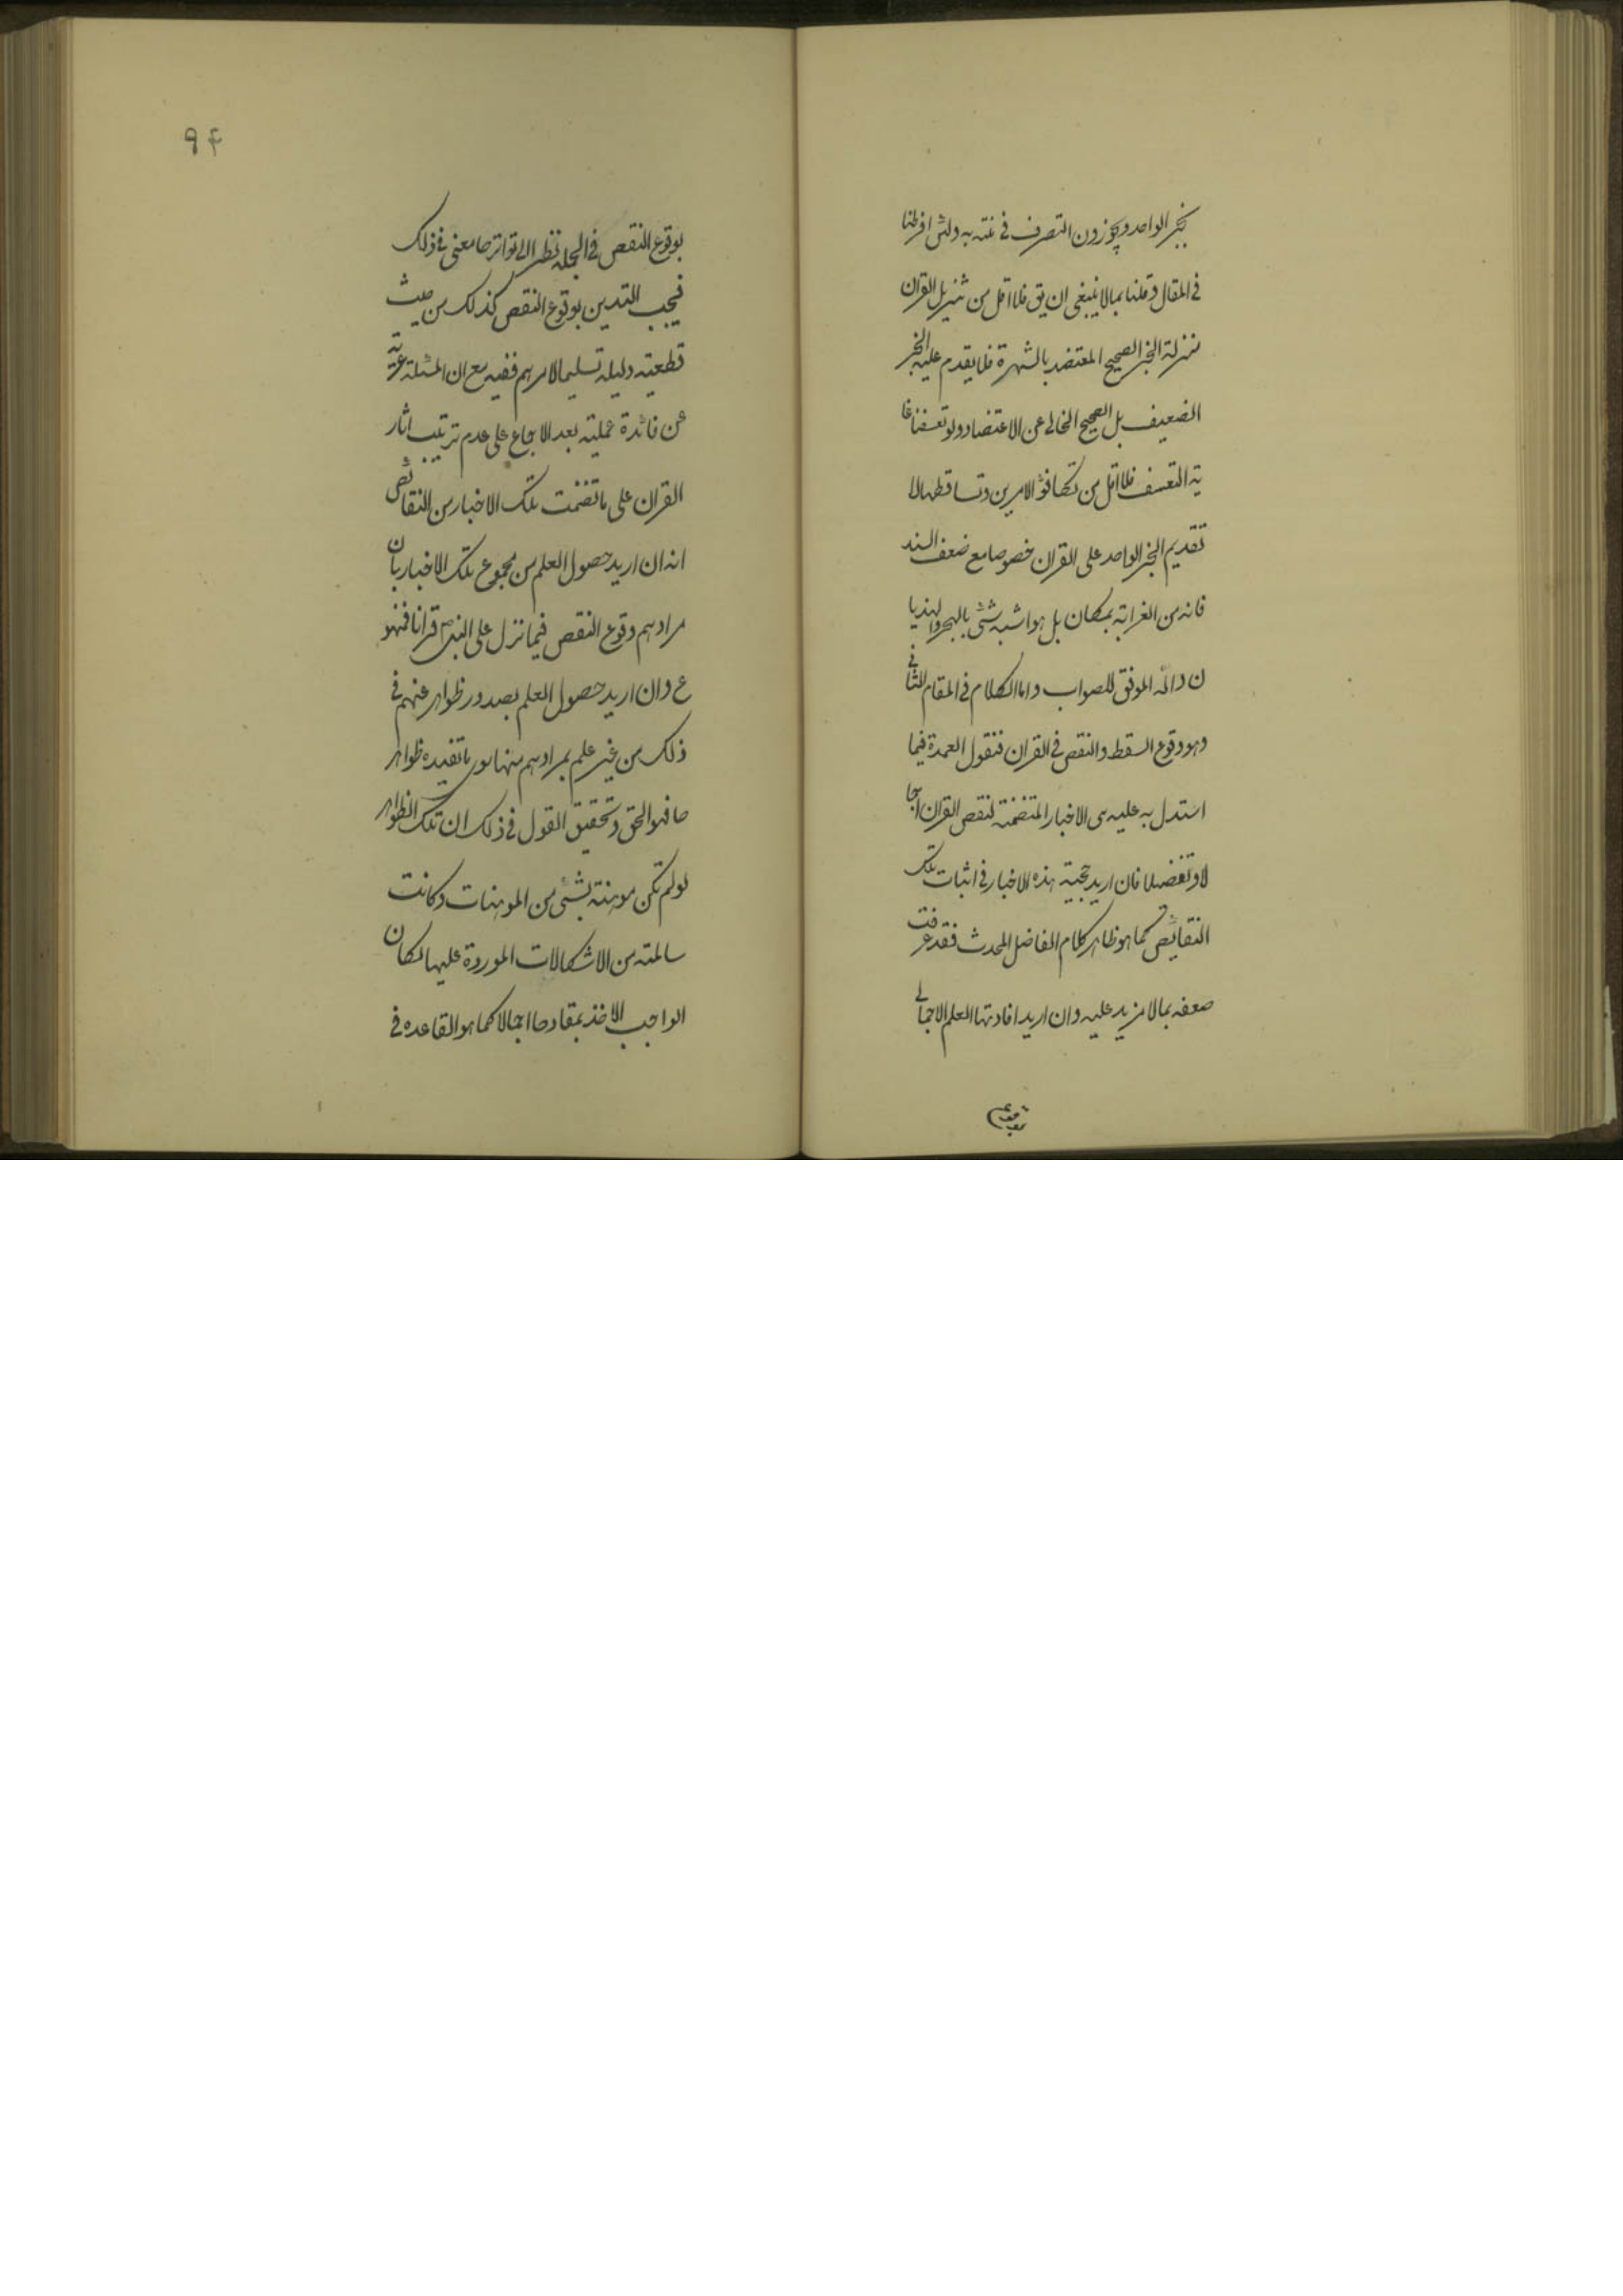 بخبر الواحد ويجوزون التصرف في به ولئن افرطنا
في المقال وقلنا بما لا ينبغي ان يق فلا اقل من تنزيل القران
منزلة الخبر الصحيح المعتضد بالشهرة فلا يقدم عليه الخبر
الضعيف بل الصحيح الخالي عن الاعتضاد ولو تعسفنا غا
ية التعسف فلا اقل من تكافؤ الامرين وتساقطهما لا
تقديم الخبر الواحد على القران خصوصا مع ضعف السند
فانه من الغرابة بمكان بل هو اشبه شئ بالهجر والهذيا
ن والله الموفق للصواب واما الكلام في المقام الثاني
وهو وقوع السقط والنقص في القران فنقول العمدة فيما
استدل به عليه هى الاخبار المتضمنة لنقص القران اجما
لا وتفصيلا فان اريد حجية هذه الاخبار في اثبات تلك
النقائص كما هو ظاهر كلام الفاضل المحدث فقد عرفت
ضعفه بما لا مزيد عليه وان اريد افادتها العلم الاجمالي
۹۴
بوقوع النقص في الجملة نظرا الى تواترها معنى في ذلك
فيجب التدين بوقوع النقص كذلك من حيث
قطعية دليله تسليما لامرهم ففيه مع ان المسئلة عرية
عن فائدة عملية بعد الاجماع على عدم ترتيب اثار
القران على ما تضمنت تلك الاخبار من النقائص
انه ان اريد حصول العلم من مجموع تلك الاخبار بان
مرادهم وقوع النقص فيما نزل على النبي ص قرانا فهو
ع وان اريد حصول العلم بصدور ظواهر عنهم في
ذلك من غير علم بمرادهم منها سوى ما تفيده ظواهر
ها فهو الحق وتحقيق القول في ذلك ان تلك الظواهر
لو لم تكن موهنة بشئ من الموهنات وكانت
سالمة من الاشكالات الموردة عليها لكان
الواجب الاخذ بمفادها اجمالا كما هو القاعده في